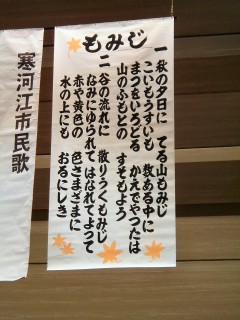 もみじ
一 秋の夕日に てる山もみじ
こいもうすいも 数ある中に
まつをいろどる かえでやつたは
山のふもとの すそもよう
二 谷の流れに 散りうくもみじ
なみにゆられて はなれてよって
赤や黄色の 色さまざまに
水の上にも おるにしき
寒河江市民歌